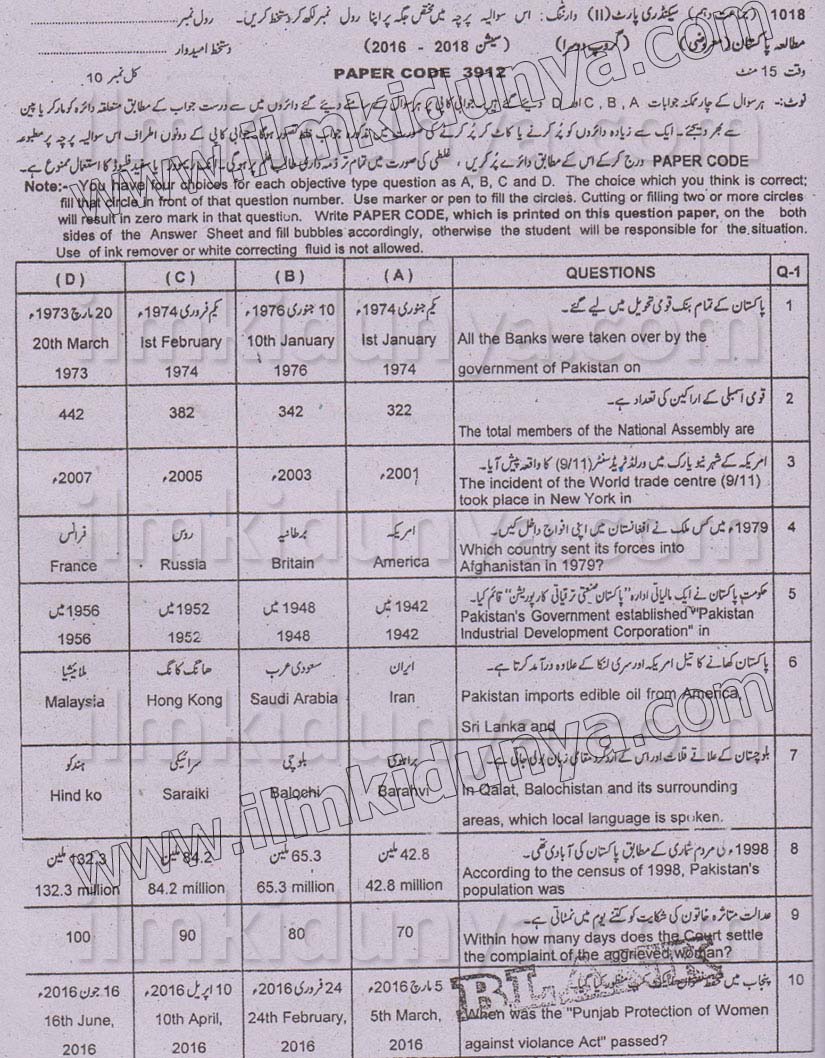 1018 (جماعت دہم) سیکنڈری پارٹ (II) وارننگ: اس سوالیہ پرچہ میں مختص جگہ پر اپنا رول نمبر لکھ کر دستخط کریں۔ رول نمبر
مطالعہ پاکستان (معروضی) (گروپ دوسرا) (سیشن 2018 - 2016) دستخط امیدوار
وقت 15 منٹ PAPER CODE 3912 کل نمبر 10
نوٹ:۔ ہر سوال کے چار ممکنہ جوابات A ، B ، C اور D دیئے گئے ہیں۔ جوابی کاپی پر ہر سوال کے سامنے دیئے گئے دائروں میں سے درست جواب کے مطابق متعلقہ دائرہ کو مارکر یا پین
سے بھر دیجئے۔ ایک سے زیادہ دائروں کو پُر کرنے یا کاٹ کر پُر کرنے کی صورت میں مذکورہ جواب غلط تصور ہوگا۔ جوابی کاپی کے دونوں اطراف اس سوالیہ پرچہ پر مطبوعہ
PAPER CODE درج کر کے اس کے مطابق دائرے پُر کریں، غلطی کی صورت میں تمام تر ذمہ داری طالب علم پر ہوگی۔ انک ریموور یا سفید فلیوڈ کا استعمال ممنوع ہے۔
Note:- You have four choices for each objective type question as A, B, C and D. The choice which you think is correct;
fill that circle in front of that question number. Use marker or pen to fill the circles. Cutting or filling two or more circles
will result in zero mark in that question. Write PAPER CODE, which is printed on this question paper, on the both
sides of the Answer Sheet and fill bubbles accordingly, otherwise the student will be responsible for the situation.
Use of ink remover or white correcting fluid is not allowed.
(D) (C) (B) (A) QUESTIONS Q-1
20 مارچ 1973ء یکم فروری 1974ء 10 جنوری 1976ء یکم جنوری 1974ء پاکستان کے تمام بنک قومی تحویل میں لیے گئے۔ 1
20th March Ist February 10th January Ist January All the Banks were taken over by the
1973 1974 1976 1974 government of Pakistan on
442 382 342 322 قومی اسمبلی کے اراکین کی تعداد ہے۔ 2
The total members of the National Assembly are
2007ء 2005ء 2003ء 2001ء امریکہ کے شہر نیویارک میں ورلڈ ٹریڈ سنٹر (9/11) کا واقعہ پیش آیا۔ 3
The incident of the World trade centre (9/11)
took place in New York in
فرانس روس برطانیہ امریکہ 1979ء میں کس ملک نے افغانستان میں اپنی افواج داخل کیں۔ 4
France Russia Britain America Which country sent its forces into
Afghanistan in 1979?
1956 میں 1952 میں 1948 میں 1942 میں حکومت پاکستان نے ایک مالیاتی ادارہ "پاکستان صنعتی ترقیاتی کارپوریشن" قائم کیا۔ 5
1956 1952 1948 1942 Pakistan's Government established "Pakistan
Industrial Development Corporation" in
ملائیشیا ہانگ کانگ سعودی عرب ایران پاکستان کھانے کا تیل امریکہ اور سری لنکا کے علاوہ درآمد کرتا ہے۔ 6
Malaysia Hong Kong Saudi Arabia Iran Pakistan imports edible oil from America,
Sri Lanka and
ہندکو سرائیکی بلوچی براہوی بلوچستان کے علاقے قلات اور اس کے اردگرد مقامی زبان بولی جاتی ہے۔ 7
Hind ko Saraiki Balochi Barahvi In Qalat, Balochistan and its surrounding
areas, which local language is spoken.
132.3 ملین 84.2 ملین 65.3 ملین 42.8 ملین 1998ء کی مردم شماری کے مطابق پاکستان کی آبادی تھی۔ 8
132.3 million 84.2 million 65.3 million 42.8 million According to the census of 1998, Pakistan's
population was
100 90 80 70 عدالت متاثرہ خاتون کی شکایت کو کتنے یوم میں نمٹاتی ہے۔ 9
Within how many days does the Court settle
the complaint of the aggrieved woman?
16 جون 2016ء 10 اپریل 2016ء 24 فروری 2016ء 5 مارچ 2016ء پنجاب میں 10
16th June, 10th April, 24th February, 5th March, When was the "Punjab Protection of Women
2016 2016 2016 2016 against violance Act" passed?
www.ilmkidunya.com
www.ilmkidunya.com
ilmkidunya.com